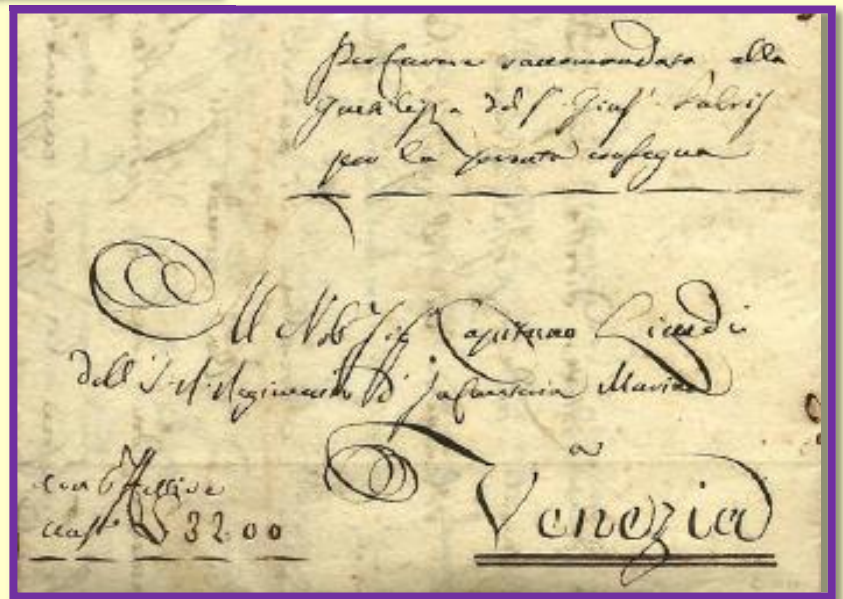 Per favore raccomandata alla
Gentilezza del S. Gius. Fabris
per la pronta consegna
Al Nob. Sig. Capitano
Dell' I. R. Reggimento d' Infanteria Marina
a
Venezia
con Effettive
Aust. 32.00